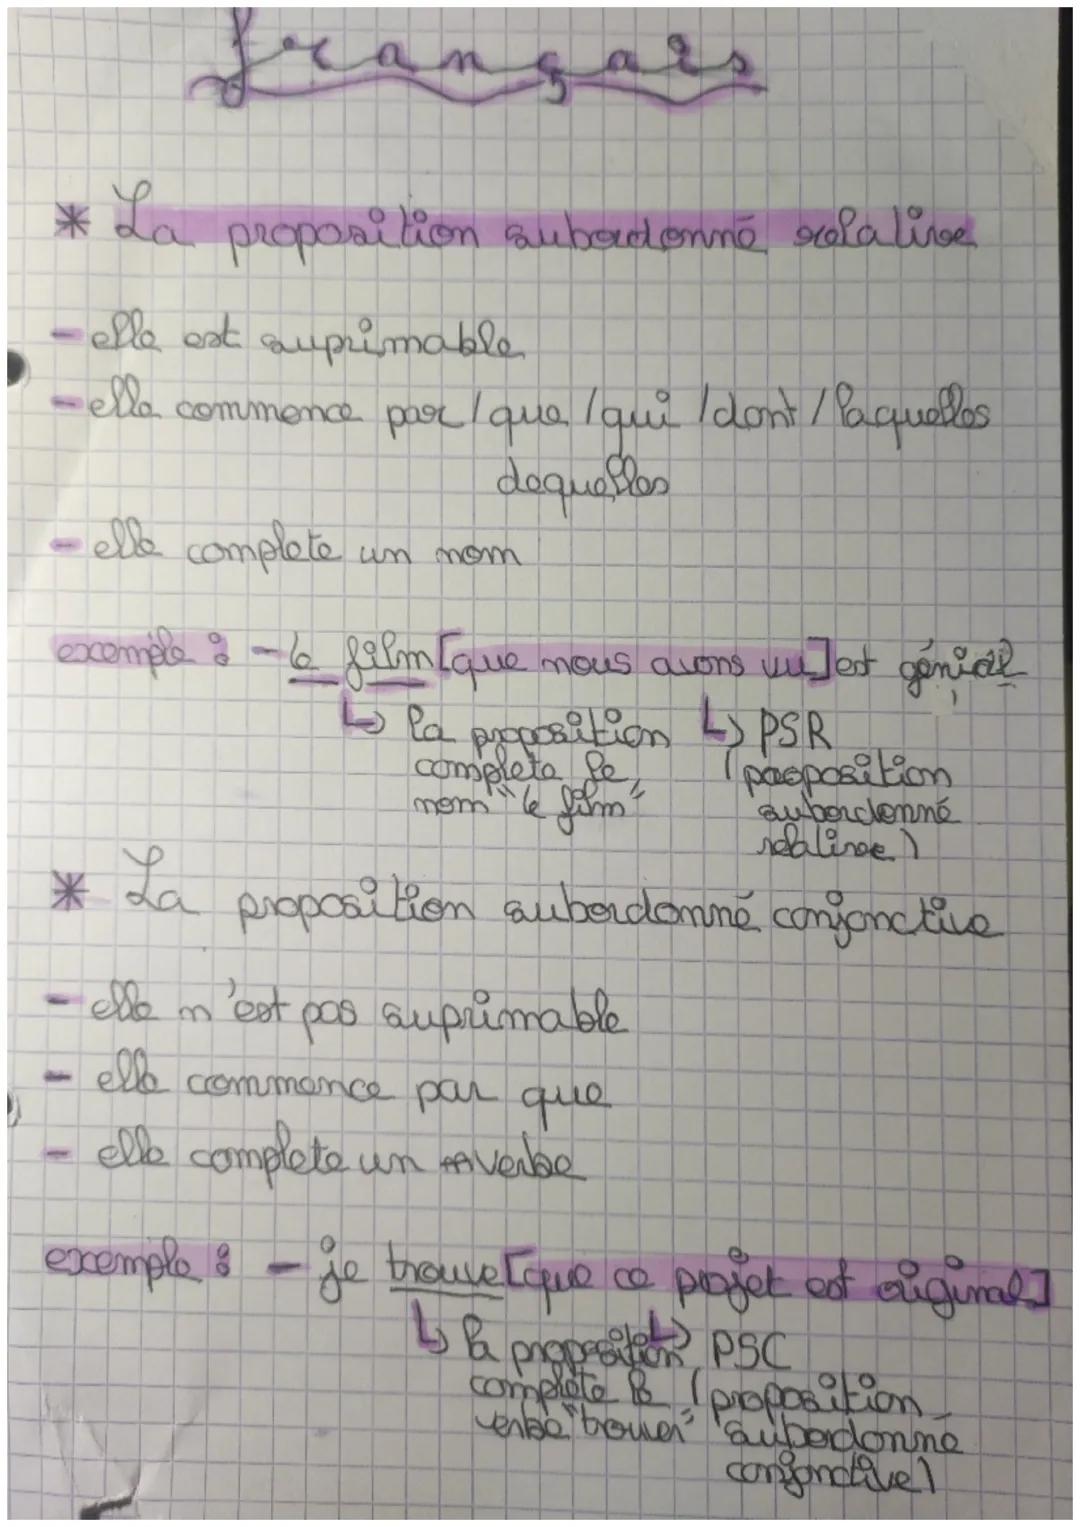 français
* La proposition subordonné relative
- elle est suprimable
- elle commence par / que / qui / dont / laquelles
dequelles
- elle complete un nom
exemple : - le film [que nous avons vu] est génial
↳ la proposition ↳ PSR
complete le (proposition
nom "le film" subordonné
relative)
* La proposition subordonné conjonctive
- elle n'est pas suprimable
- elle commence par que
- elle complete un verbe
exemple : - je trouve [que ce projet est original]
↳ la proposition ↳ PSC
complete le (proposition
verbe "trouver" subordonné
conjonctive)